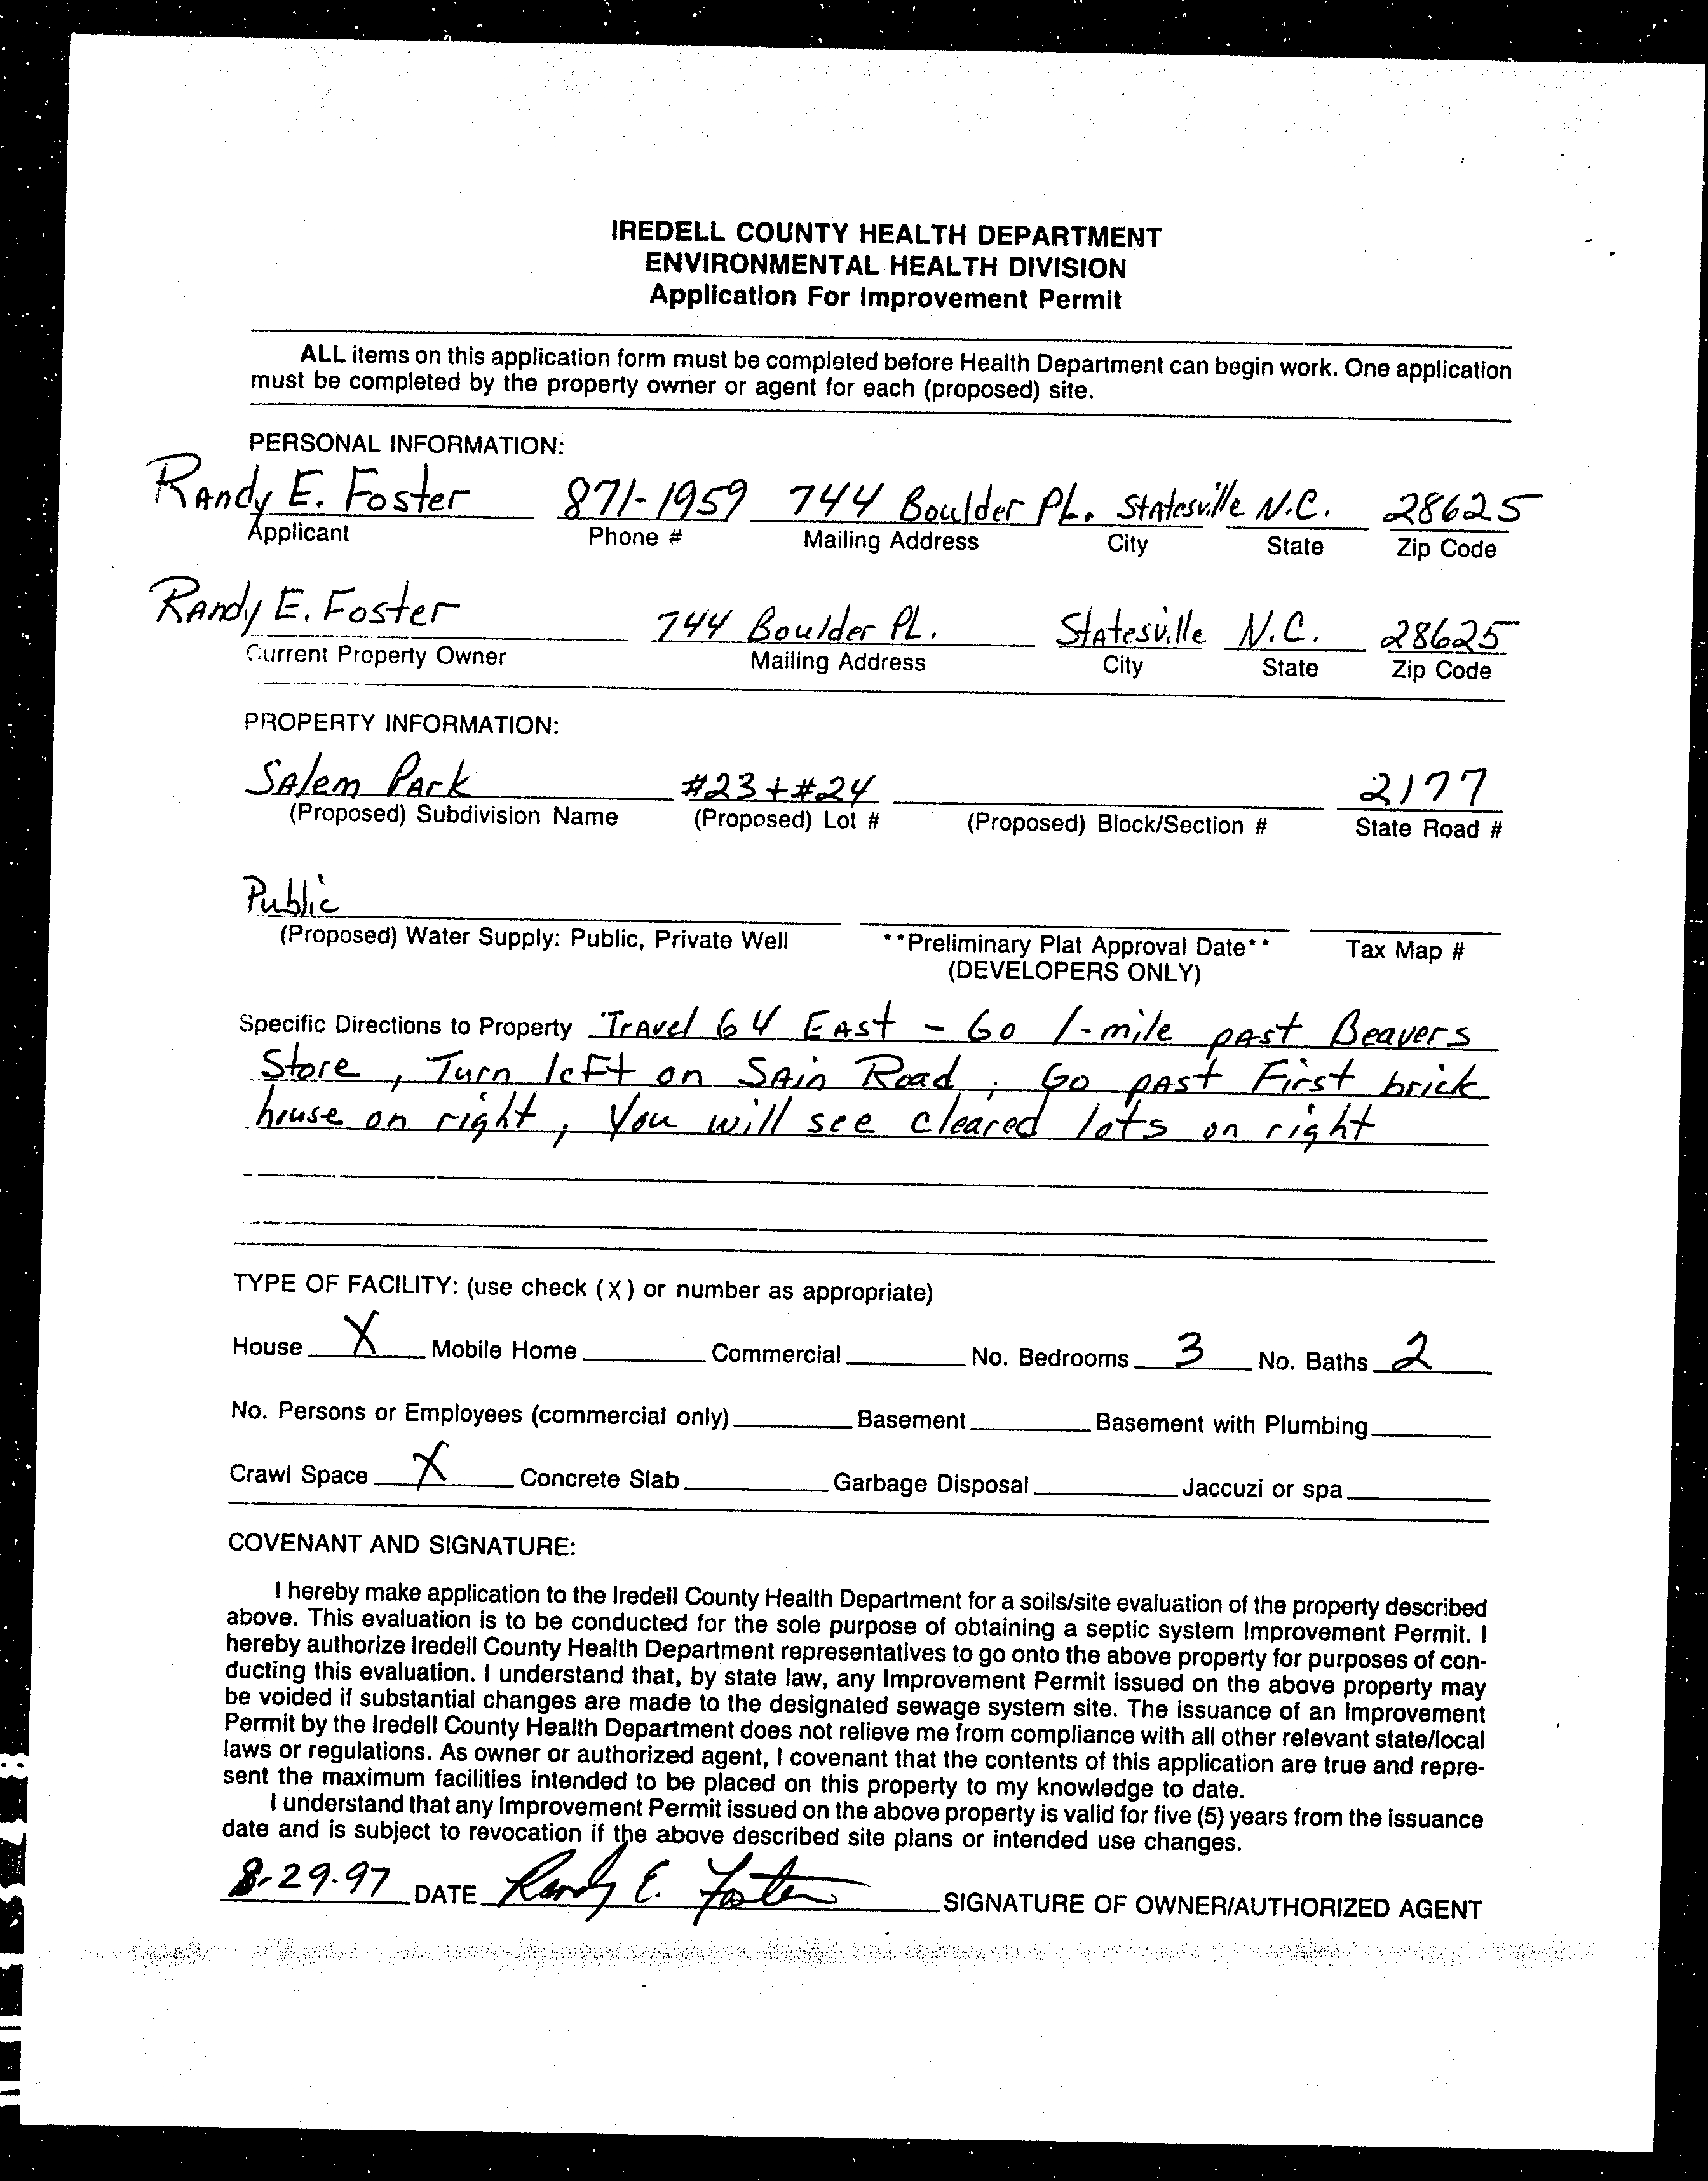 IREDELL COUNTY HEALTH DEPARTMENT
ENVIRONMENTAL HEALTH DIVISION
Application For Improvement Permit
ALL items on this application form must be completed before Health Department can begin work. One application
must be completed by the property owner or agent for each (proposed) site.
PERSONAL INFORMATION:
Randy E. Foster 871-1959 744 Boulder PL. Statesville N.C. 28625
Applicant Phone # Mailing Address City State Zip Code
Randy E. Foster 744 Boulder PL. Statesville N.C. 28625
Current Property Owner Mailing Address City State Zip Code
PROPERTY INFORMATION:
Salem Park #23 + #24 2177
(Proposed) Subdivision Name (Proposed) Lot # (Proposed) Block/Section # State Road #
Public
(Proposed) Water Supply: Public, Private Well **Preliminary Plat Approval Date** Tax Map #
(DEVELOPERS ONLY)
Specific Directions to Property Travel 64 East - Go 1-mile past Beavers
Store, Turn left on Sain Road, Go past First brick
house on right, You will see cleared lots on right
TYPE OF FACILITY: (use check (X) or number as appropriate)
House X Mobile Home Commercial No. Bedrooms 3 No. Baths 2
No. Persons or Employees (commercial only) Basement Basement with Plumbing
Crawl Space X Concrete Slab Garbage Disposal Jaccuzi or spa
COVENANT AND SIGNATURE:
I hereby make application to the Iredell County Health Department for a soils/site evaluation of the property described
above. This evaluation is to be conducted for the sole purpose of obtaining a septic system Improvement Permit. I
hereby authorize Iredell County Health Department representatives to go onto the above property for purposes of con-
ducting this evaluation. I understand that, by state law, any Improvement Permit issued on the above property may
be voided if substantial changes are made to the designated sewage system site. The issuance of an Improvement
Permit by the Iredell County Health Department does not relieve me from compliance with all other relevant state/local
laws or regulations. As owner or authorized agent, I covenant that the contents of this application are true and repre-
sent the maximum facilities intended to be placed on this property to my knowledge to date.
I understand that any Improvement Permit issued on the above property is valid for five (5) years from the issuance
date and is subject to revocation if the above described site plans or intended use changes.
8-29-97 DATE Randy E. Foster SIGNATURE OF OWNER/AUTHORIZED AGENT